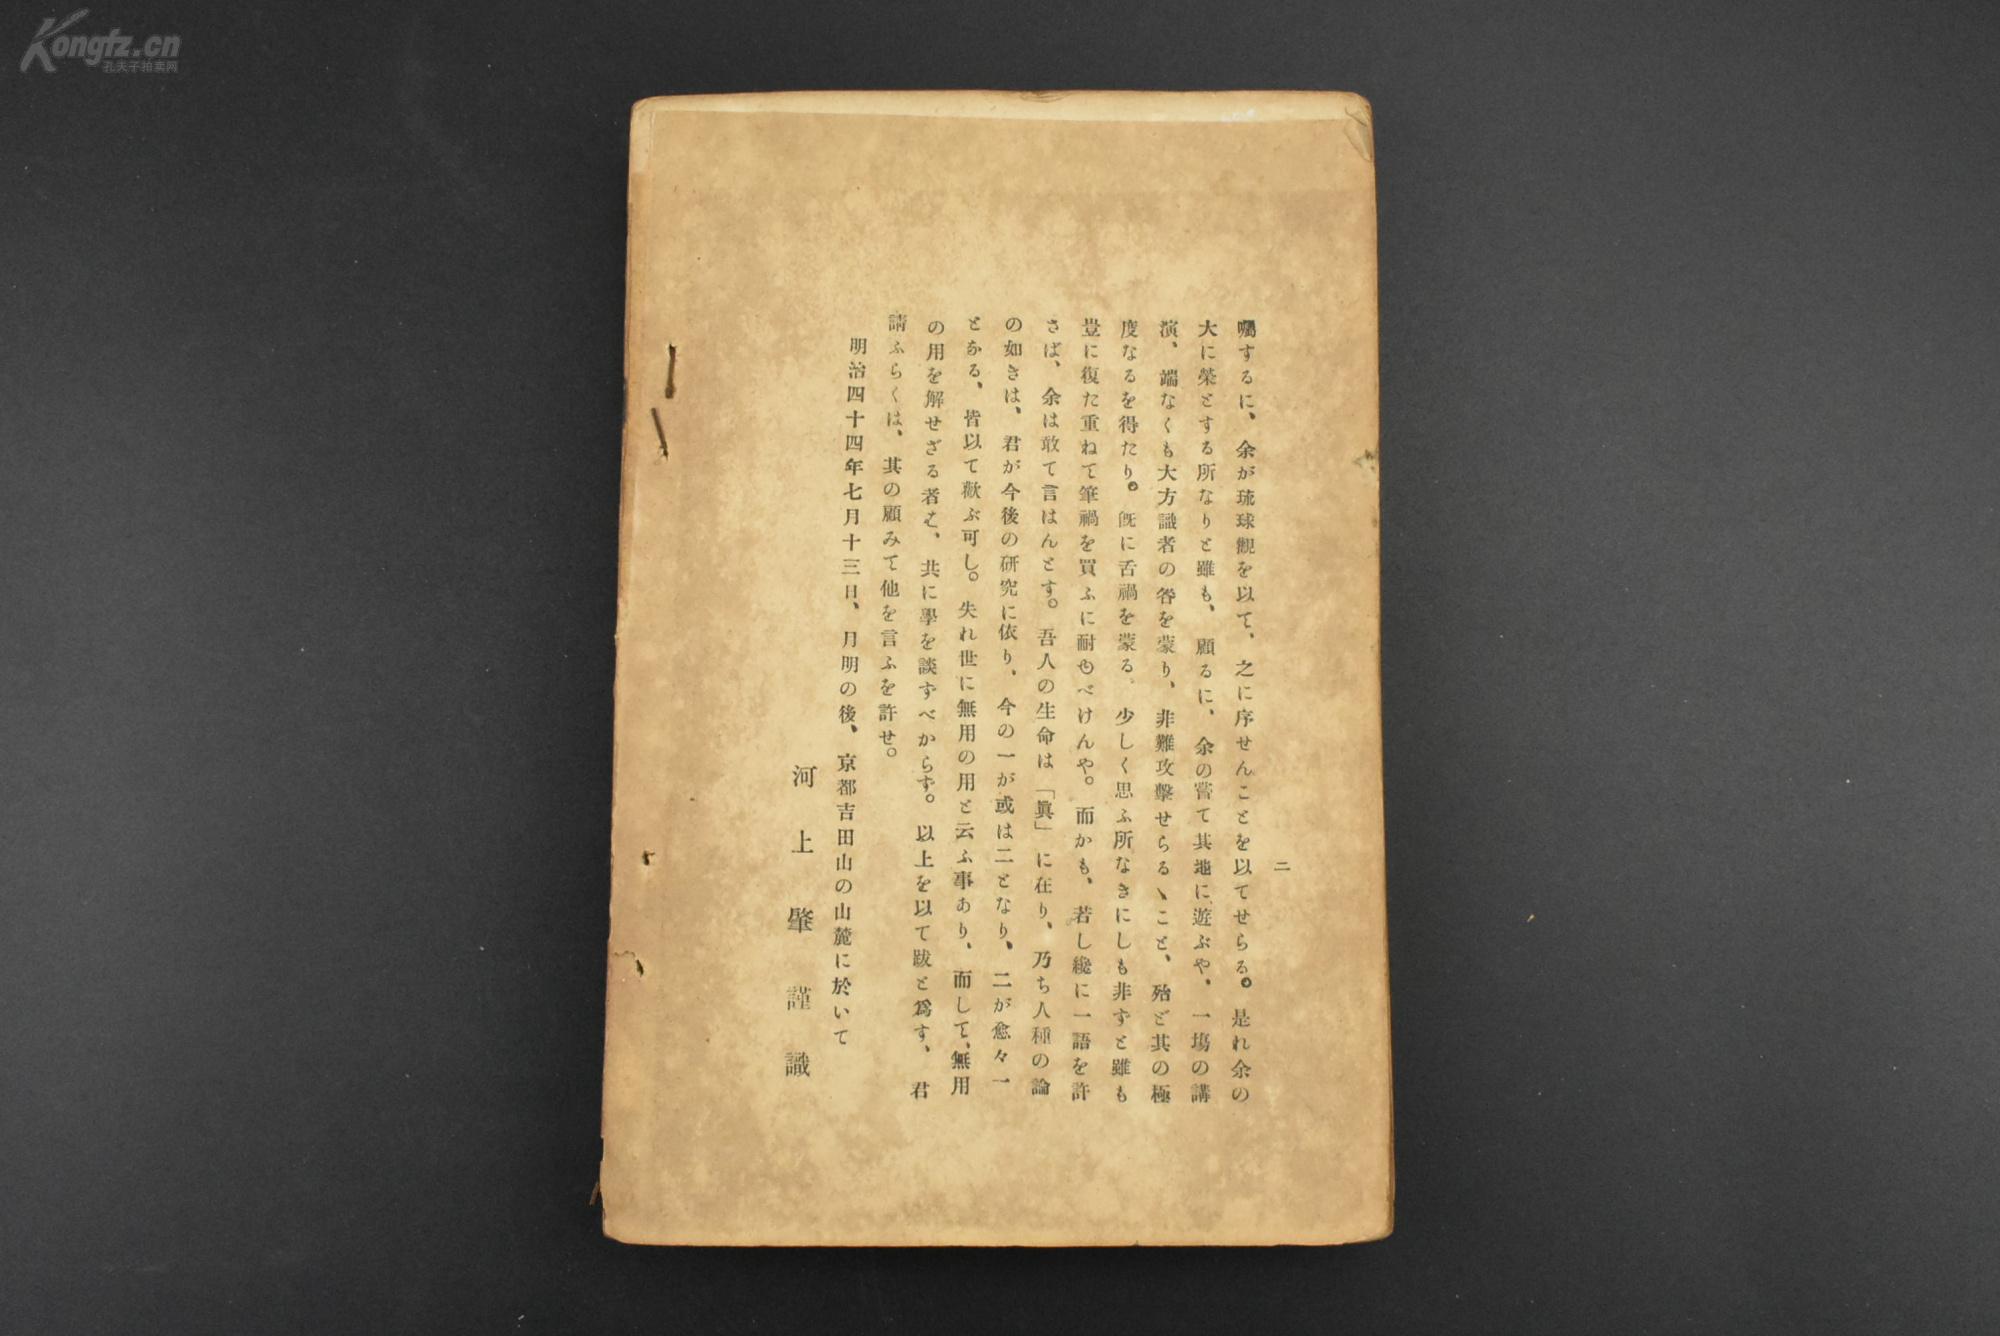 Kongfz.cn
孔夫子拍卖网
二
囑するに、余が琉球觀を以て、之に序せんことを以てせらる。是れ余の
大に榮とする所なりと雖も、顧るに、余の嘗て其地に遊ぶや、一塲の講
演、端なくも大方識者の咎を蒙り、非難攻擊せらるヽこと、殆ど其の極
度なるを得たり。既に舌禍を蒙る。少しく思ふ所なきにしも非ずと雖も
豈に復た重ねて筆禍を買ふに耐ゆべけんや。而かも、若し纔に一語を許
さば、余は敢て言はんとす。吾人の生命は「眞」に在り、乃ち人種の論
の如きは、君が今後の硏究に依り、今の一が或は二となり、二が愈々一
となる、皆以て歡ぶ可し。失れ世に無用の用と云ふ事あり、而して、無用
の用を解せざる者と、共に學を談ずべからず。以上を以て跋と爲す、君
請ふらくは、其の顧みて他を言ふを許せ。
明治四十四年七月十三日、月明の後、京都吉田山の山麓に於いて
河上肇謹識